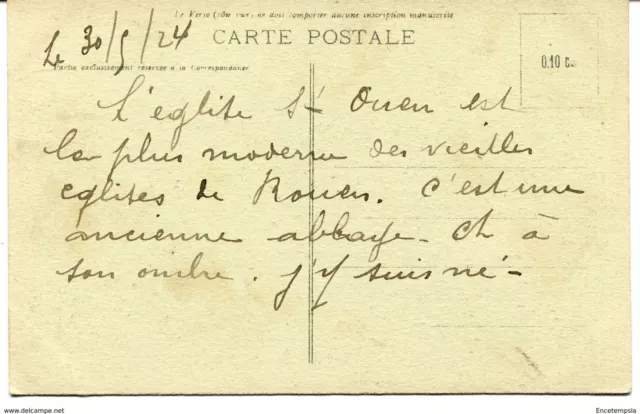 Le Verso (côté vue) ne doit comporter aucune inscription manuscrite
Le 30/5/24
CARTE POSTALE
Partie exclusivement réservée à la Correspondance
0.10 c.
L'eglise St Ouen est
la plus moderne des vieilles
eglises de Rouen. C'est une
ancienne abbaye. Et à
son ombre. j'y suis né -
delcampe.net
Encetempsla